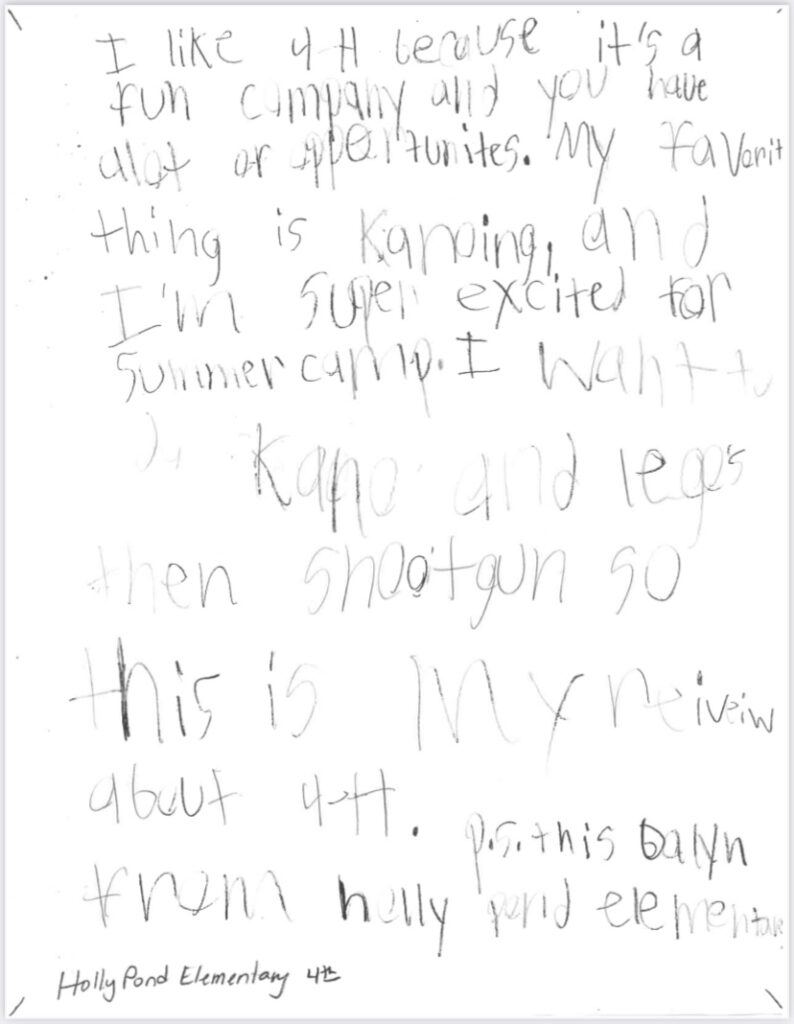 I like 4-H because it's a
fun company and you have
alot of opportunites. My favorit
thing is Kanoing, and
I'm super excited for
summer camp. I want to
Kano and legos
then shootgun so
this is My reiveiw
about 4-H.
p.s. this Balyn
from holly pond elementare
Holly Pond Elementary 4th